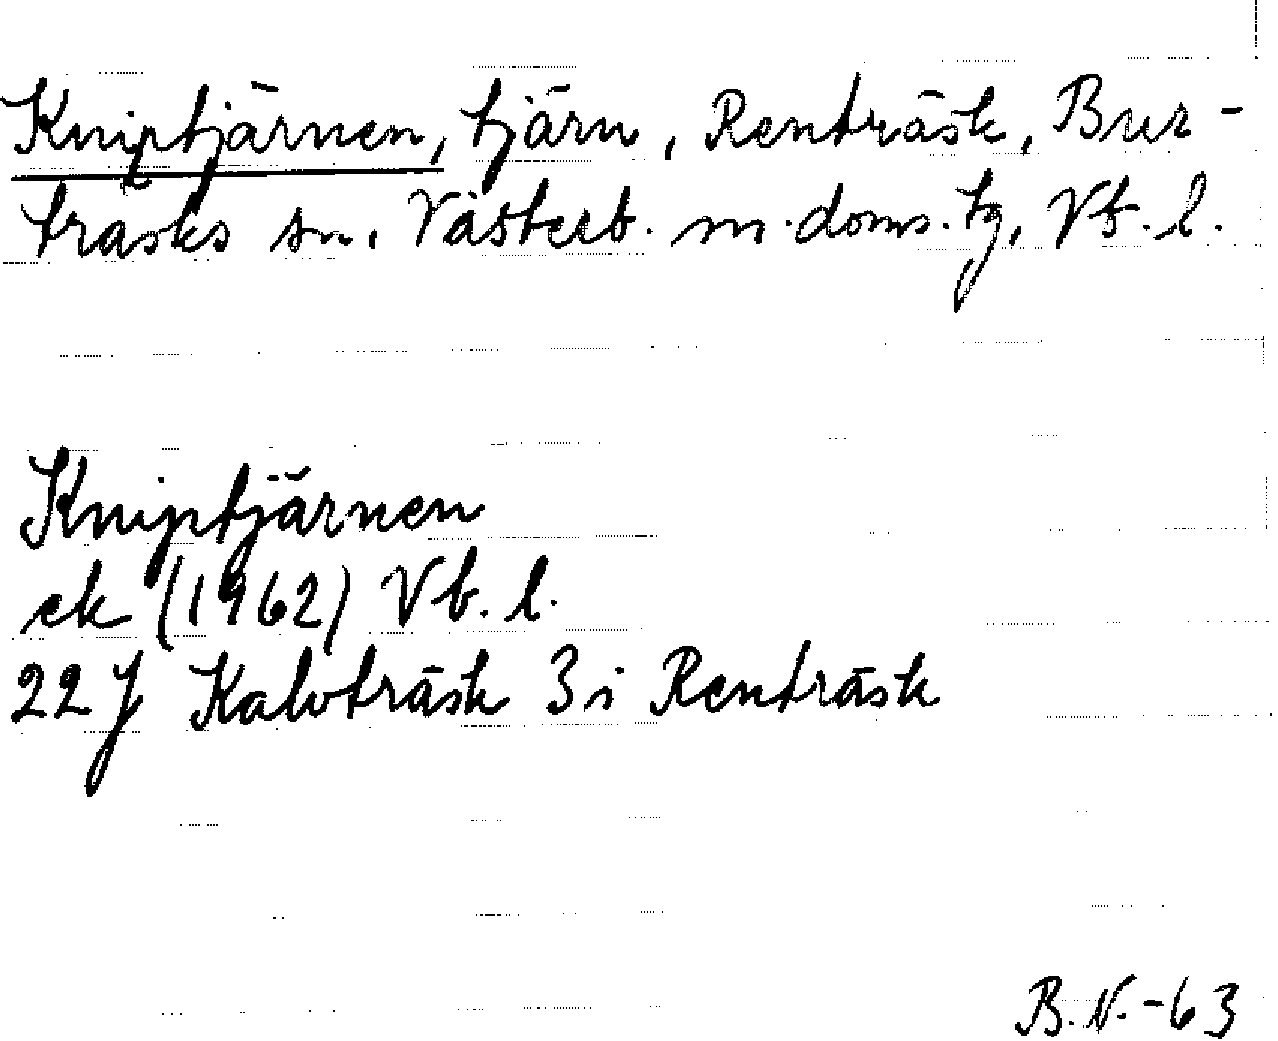 Kniptjärnen, tjärn, Renträsk, Bur-
träsks sn, Västerb. m. doms. tg, Vb. l.
Kniptjärnen
ek (1962) Vb. l.
22 J Kalvträsk 3 i Renträsk
B. N. -63